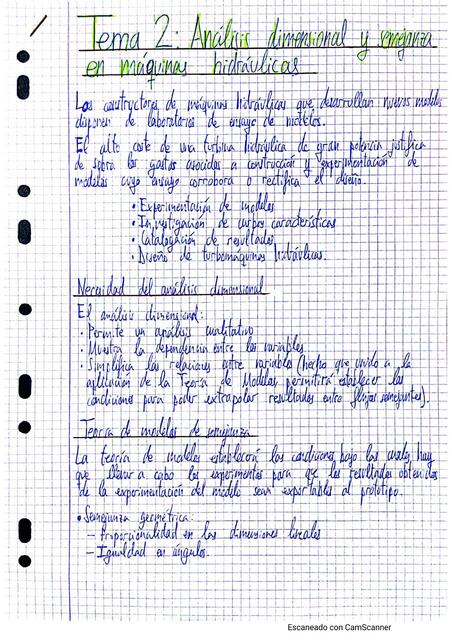 Tema 2: Análisis dimensional y semejanza
en máquinas hidráulicas
Los constructores de máquinas hidráulicas que desarrollan nuevos modelos
disponen de laboratorios de ensayo de modelos.
El alto coste de una turbina hidráulica de gran potencia justifica
de sobra los gastos asociados a construcción y experimentación de
modelos cuyo ensayo corrobora o rectifica el diseño.
• Experimentación de modelos
• Investigación de curvas características
• Catalogación de resultados
• Diseño de turbomáquinas hidráulicas.
Necesidad del análisis dimensional
El análisis dimensional:
• Permite un análisis cualitativo
• Muestra la dependencia entre las variables
• Simplifica las relaciones entre variables (hecho que unido a la
aplicación de la Teoría de Modelos, permitirá establecer las
condiciones para poder extrapolar resultados entre flujos semejantes).
Teoría de modelos de semejanza
La teoría de modelos establecerá las condiciones bajo las cuales hay
que llevar a cabo los experimentos para que los resultados obtenidos
de la experimentación del modelo sean exportables al prototipo.
• Semejanza geométrica:
- Proporcionalidad en las dimensiones lineales
- Igualdad en ángulos.
Escaneado con CamScanner